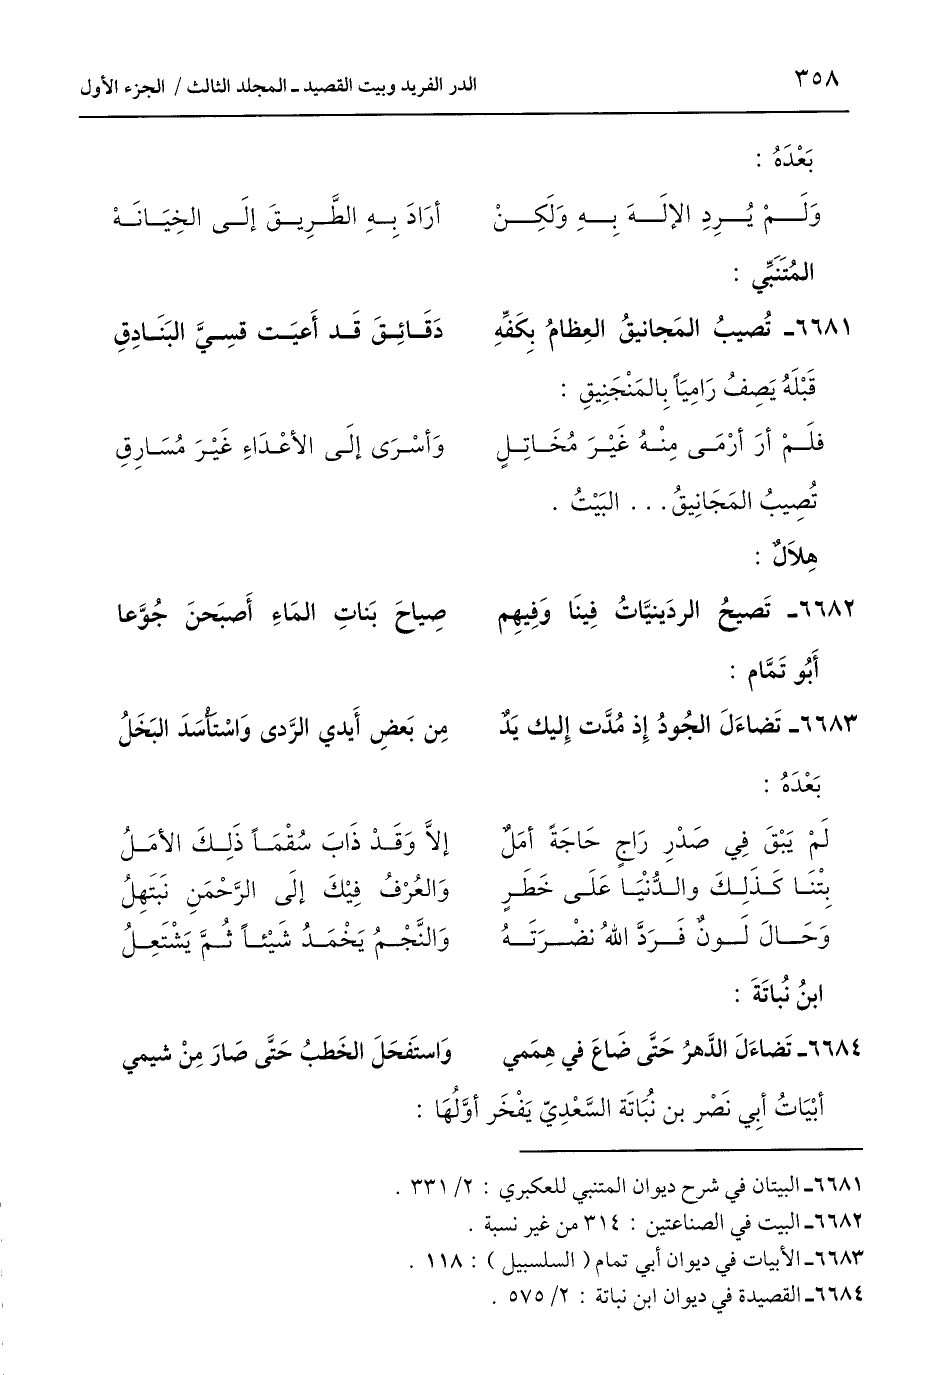 ٣٥٨ الدر الفريد وبيت القصيد ـ المجلد الثالث / الجزء الأول
بَعْدَهُ :
وَلَمْ يُرِدِ الإلَهَ بِهِ وَلَكِنْ أرَادَ بِهِ الطَّرِيقَ إلَى الخِيَانَهْ
المُتَنَبِّي :
٦٦٨١ـ تُصيبُ المَجانيقُ العِظامُ بِكَفِّهِ دَقَائِقَ قَد أَعيَت قسِيَّ البَنَادِقِ
قَبْلَهُ يَصِفُ رَامِيَاً بِالمَنْجَنِيقِ :
فلَمْ أرَ أرْمَى مِنْهُ غَيْرَ مُخَاتِلٍ وَأسْرَى إلَى الأعْدَاءِ غَيْرَ مُسَارِقِ
تُصِيبُ المَجَانِيقُ... البَيْتُ .
هِلاَلٌ :
٦٦٨٢ـ تَصيحُ الردَينِيَّاتُ فِينَا وَفِيهِم صِياحَ بَناتِ المَاءِ أَصبَحنَ جُوَّعا
أَبُو تَمَّام :
٦٦٨٣ـ تَضاءَلَ الجُودُ إذ مُدَّت إليك يَدٌ مِن بَعضِ أَيدي الرَّدى وَاسْتَأْسَدَ البَخَلُ
بَعْدَهُ :
لَمْ يَبْقَ فِي صَدْرِ رَاجٍ حَاجَةً أمَلٌ إلاَّ وَقَدْ ذَابَ سُقْمَاً ذَلِكَ الأمَلُ
بِتْنَا كَذَلِكَ والدُّنْيَا عَلَى خَطَرٍ وَالعُرْفُ فِيْكَ إلَى الرَّحْمَنِ نَبَتَهِلُ
وَحَالَ لَونٌ فَرَدَّ اللهُ نضْرَتَهُ وَالنَّجْمُ يَخْمَدُ شَيْئَاً ثُمَّ يَشْتَعِلُ
ابنُ نُباتَةَ :
٦٦٨٤ـ تَضاءَلَ الدَّهرُ حَتَّى ضَاعَ في هِمَمي وَاستَفحَلَ الخَطبُ حَتَّى صَارَ مِنْ شيمي
أبْيَاتُ أبي نَصْر بن نُبَاتَة السَّعْدِيّ يَفْخَر أوَّلُهَا :
٦٦٨١ـ البيتان في شرح ديوان المتنبي للعكبري : ٢/ ٣٣١ .
٦٦٨٢ـ البيت في الصناعتين : ٣١٤ من غير نسبة .
٦٦٨٣ـ الأبيات في ديوان أبي تمام ( السلسبيل ) : ١١٨ .
٦٦٨٤ـ القصيدة في ديوان ابن نباتة : ٢/ ٥٧٥ .